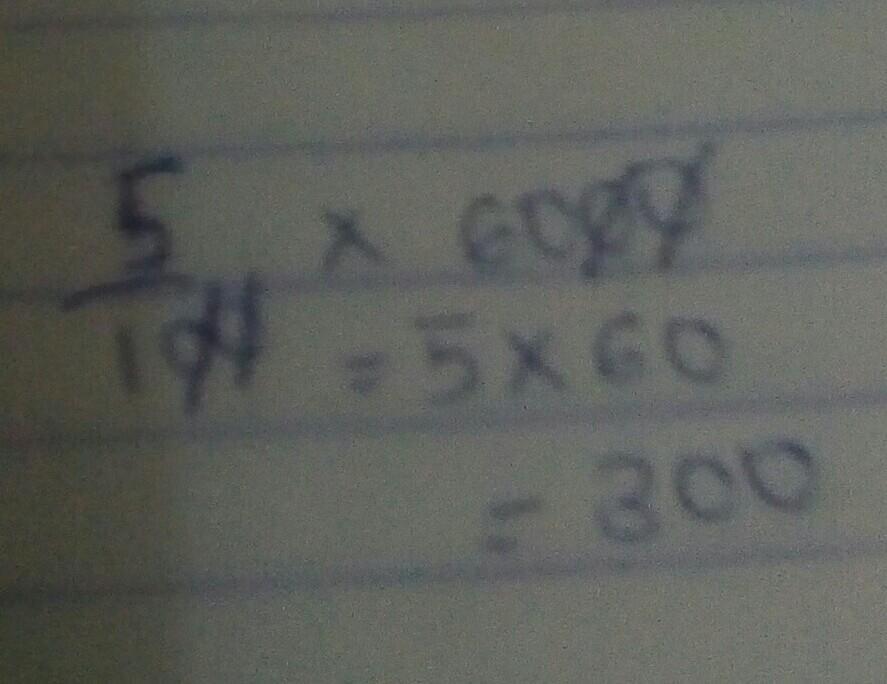 5/100 × 6000
= 5 × 60
= 300